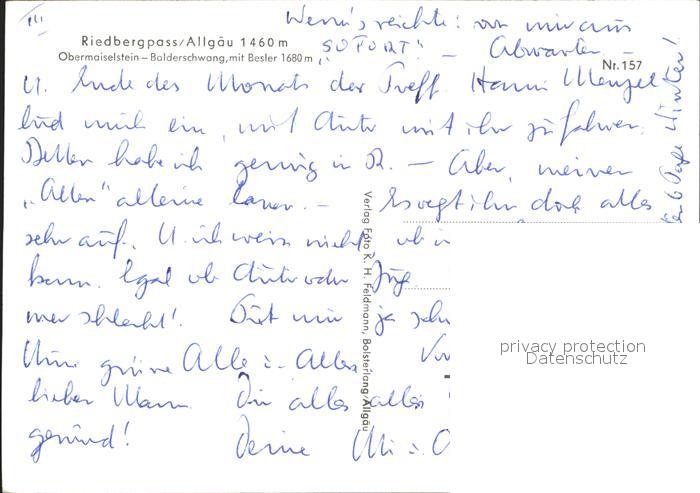 III
Wenn's reichte: von mir aus
Riedbergpass/Allgäu 1460 m
„SOFORT"! — Abwarten —
Obermaiselstein – Balderschwang, mit Besler 1680 m
Nr. 157
U. Ende des Monats der Treff Hanni Menzel
lud mich ein, mit Auto mit ihr zu fahren.
Betten habe ich genug in R. — Aber, meinen
„Alten" alleine lassen. — Es regt ihn doch alles
sehr auf. U. ich weiss nicht, ob i
kann. Egal ob Auto oder Zug.
mer schlecht! Tut mir ja sehr
Uns grüne Alle : Alles
lieber Mann. Dir alles alles
gesund! Deine
6 Tage Winter!
Verlag Foto K. H. Feldmann, Bolsterlang/Allgäu
privacy protection
Datenschutz